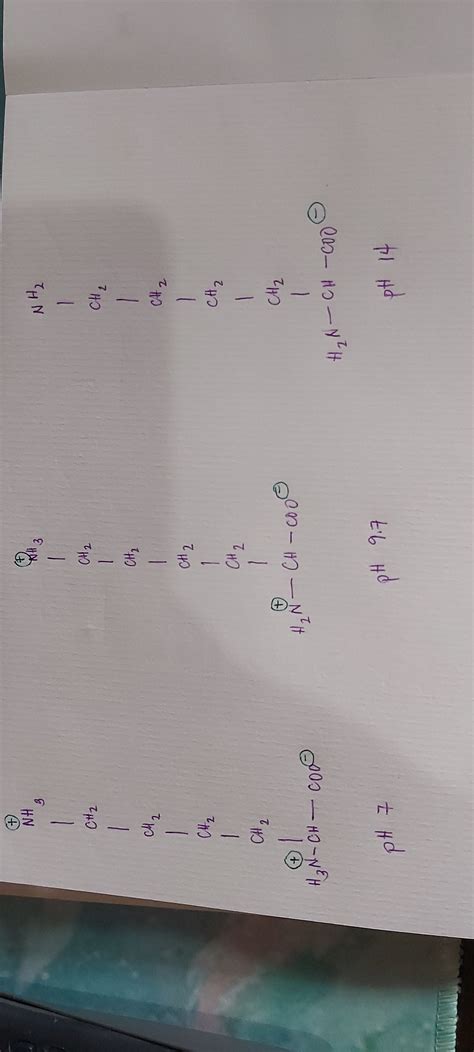 ⊕
NH3
|
CH2
|
CH2
|
CH2
|
CH2
|
⊕ ⊖
H3N—CH—COO
pH 7
⊕
NH3
|
CH2
|
CH2
|
CH2
|
CH2
|
⊕ ⊖
H2N—CH—COO
pH 9.7
NH2
|
CH2
|
CH2
|
CH2
|
CH2
|
⊖
H2N—CH—COO
pH 14